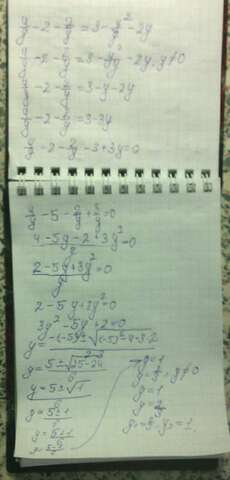 4/y - 2 - 2/y = 3 - y²/y - 2y
4/y - 2 - 2/y = 3 - y²/y - 2y, y≠0
4/y - 2 - 2/y = 3 - y - 2y
4/y - 2 - 2/y = 3 - 3y
4/y - 2 - 2/y - 3 + 3y = 0
4/y - 5 - 2/y + 3y = 0
(4 - 5y - 2 + 3y²)/y = 0
(2 - 5y + 3y²)/y = 0
2 - 5y + 3y² = 0
3y² - 5y + 2 = 0
y = (-(-5) ± √((-5)² - 4·3·2
y = (5 ± √(25 - 24
y = (5 ± √1)/6
y = (5 ± 1)/6
y = (5 + 1)/6
y = (5 -
y = 1
y = 2/3, y≠0
y = 1
y = 2/3
y₁ = 2/3, y₂ = 1